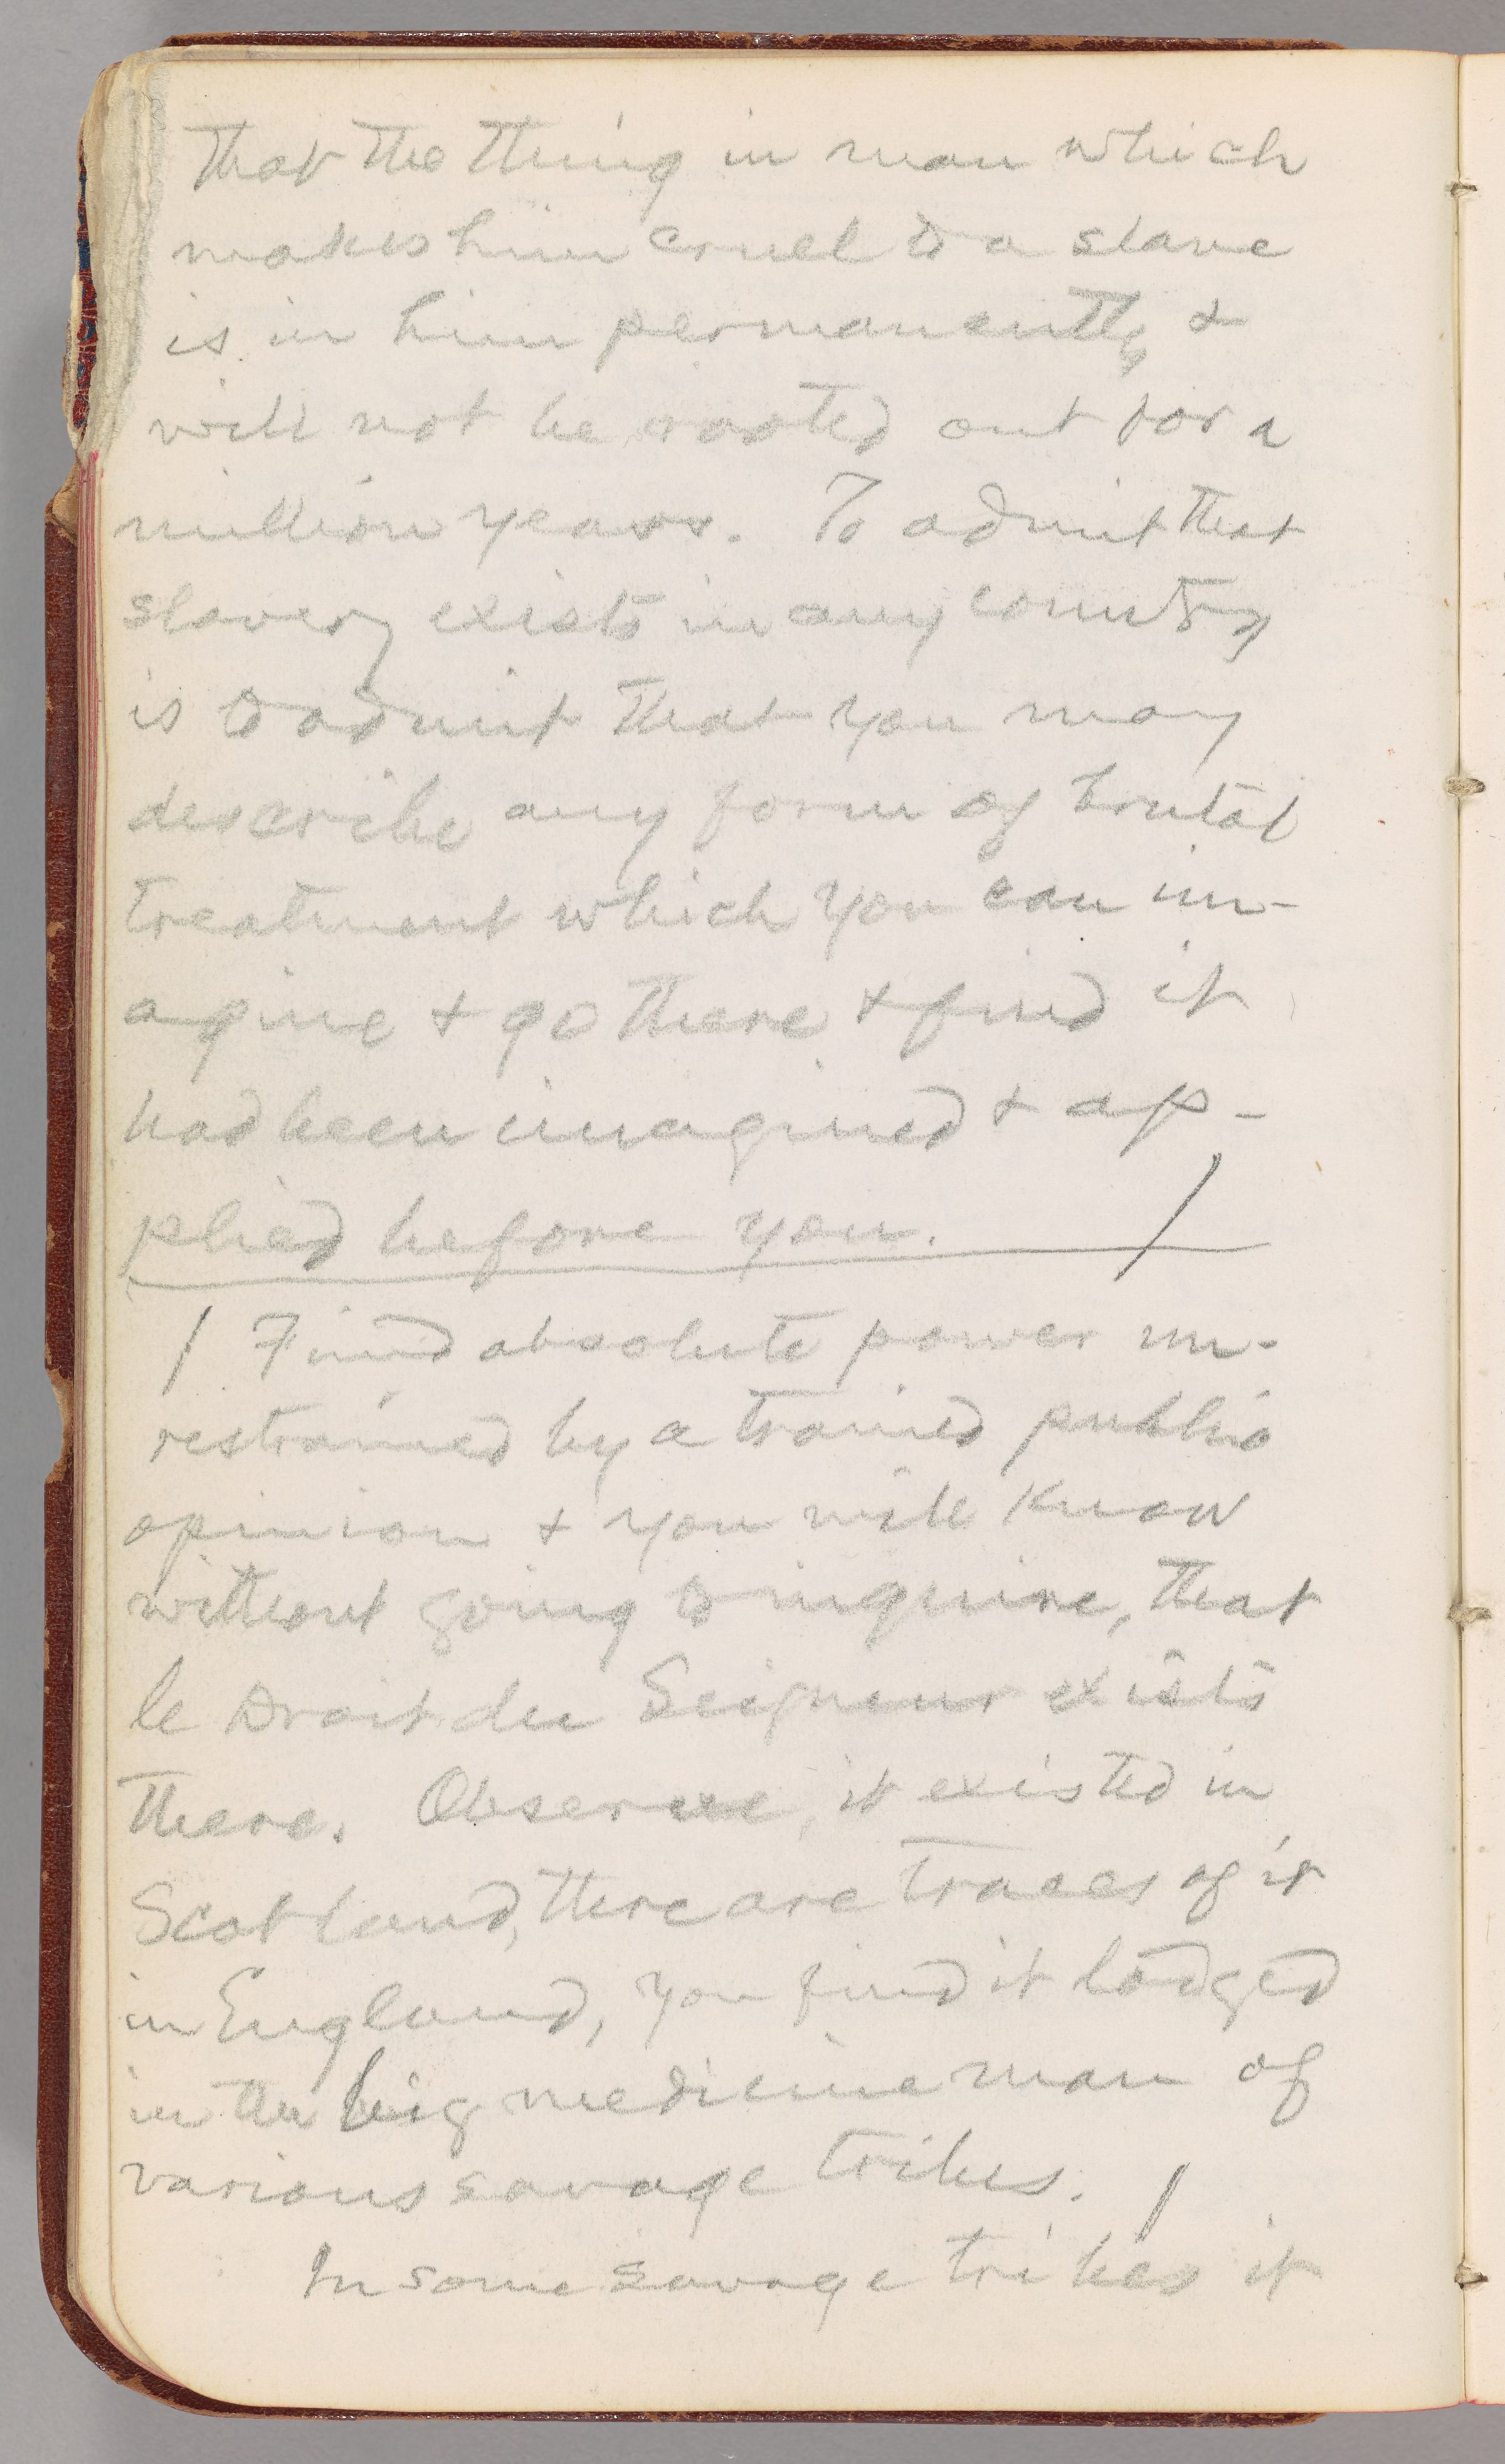 that the thing in man which
makes him cruel to a slave
is in him permanently &
will not be rooted out for a
million years. To admit that
slavery exists in any country
is to admit that you may
describe any form of brutal
treatment which you can im-
agine & go there & find it
had been imagined & ap-
plied before you. /
/ Find absolute power un-
restrained by a trained public
opinion & you will know
without going to inquire, that
le Droit du Seigneur exists
there. Observe, it existed in
Scotland, there are traces of it
in England, you find it lodged
in the big medicine man of
various savage tribes. /
In some savage tribes it